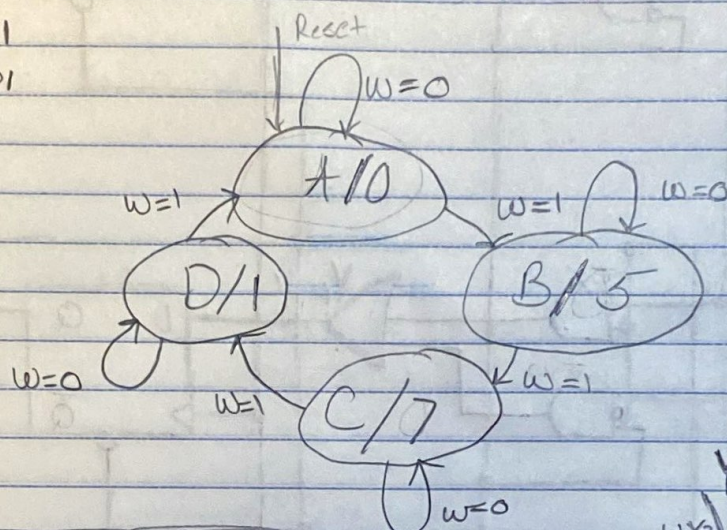 Reset
w=0
A/0
w=1
w=1
w=0
D/1
B/5
w=0
w=1
w=1
C/7
w=0